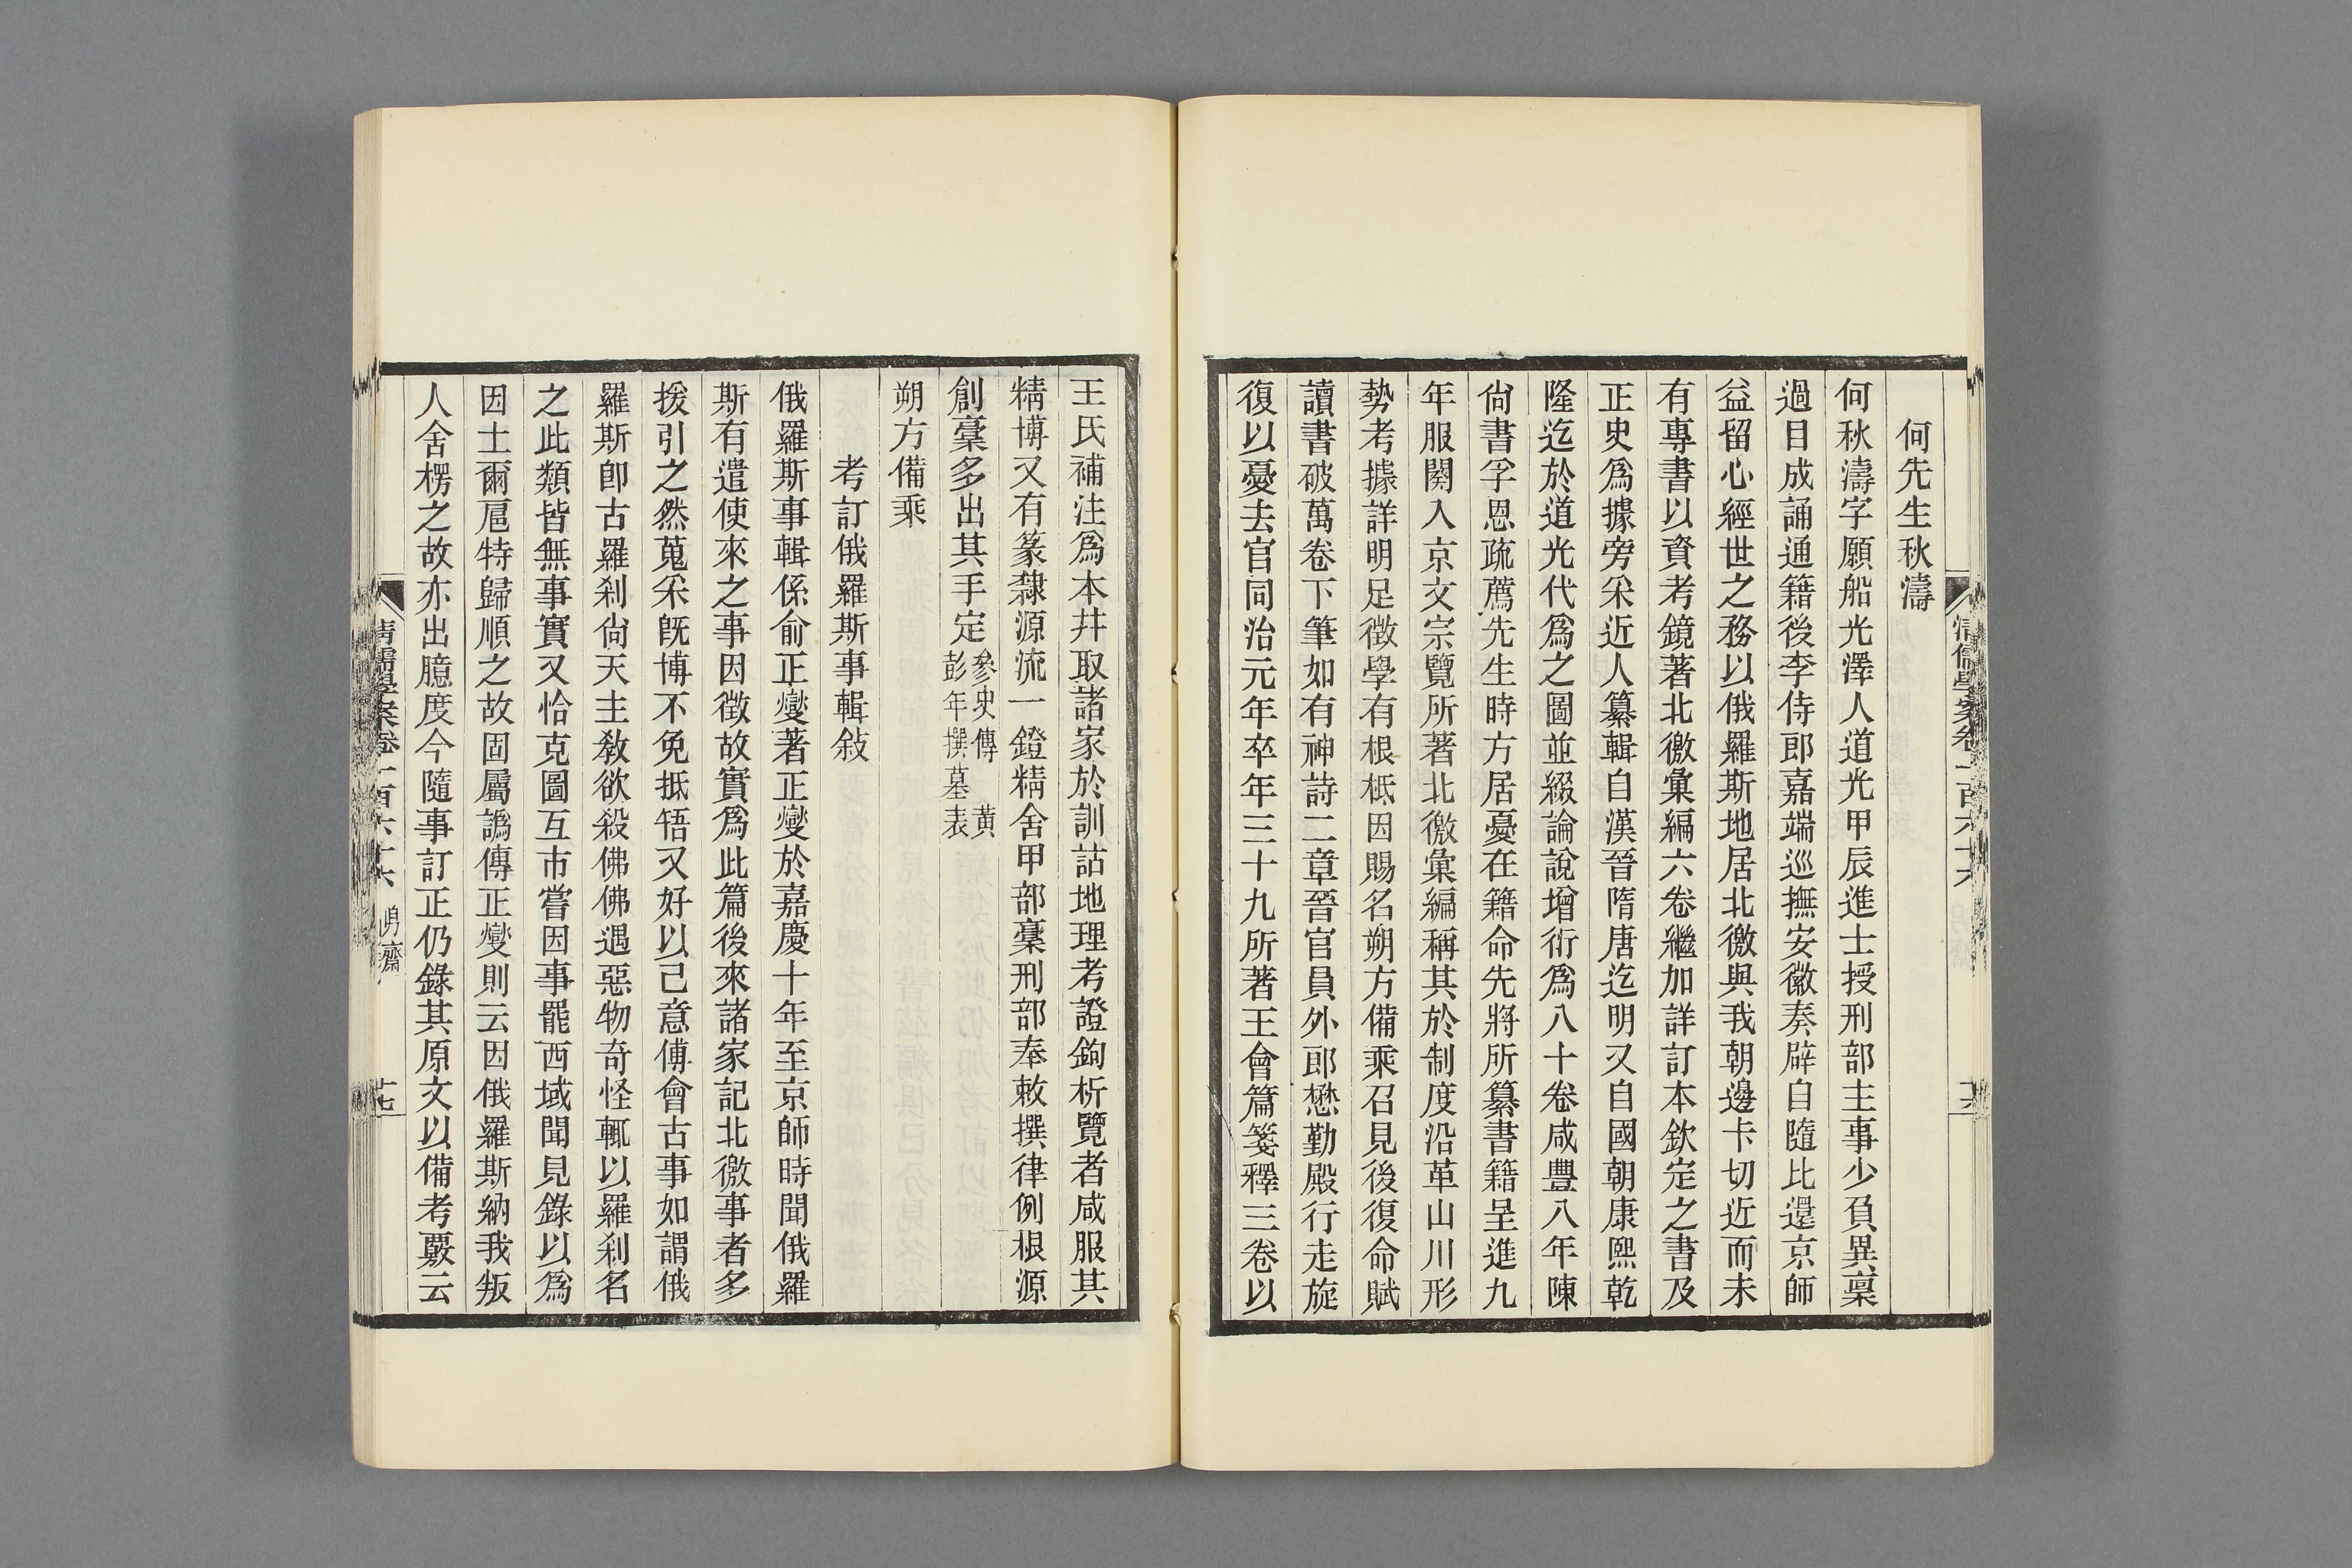 何先生秋濤
何秋濤字願船光澤人道光甲辰進士授刑部主事少負異稟
過目成誦通籍後李侍郎嘉端巡撫安徽奏辟自隨比還京師
益留心經世之務以俄羅斯地居北徼與我朝邊卡切近而未
有專書以資考鏡著北徼彙編六卷繼加詳訂本欽定之書及
正史爲據旁采近人纂輯自漢晉隋唐迄明又自國朝康熙乾
隆迄於道光代爲之圖並綴論說增衍爲八十卷咸豐八年陳
尙書孚恩疏薦先生時方居憂在籍命先將所纂書籍呈進九
年服闋入京文宗覽所著北徼彙編稱其於制度沿革山川形
勢考據詳明足徵學有根柢因賜名朔方備乘召見後復命賦
讀書破萬卷下筆如有神詩二章晉官員外郎懋勤殿行走旋
復以憂去官同治元年卒年三十九所著王會篇箋釋三卷以
清儒學案卷一百六十六
十六
王氏補注爲本幷取諸家於訓詁地理考證鉤析覽者咸服其
精博又有篆隸源流一鐙精舍甲部稾刑部奉敕撰律例根源
創稾多出其手定參史傳　黃彭年撰墓表
朔方備乘
考訂俄羅斯事輯敍
俄羅斯事輯係俞正燮著正燮於嘉慶十年至京師時聞俄羅
斯有遣使來之事因徵故實爲此篇後來諸家記北徼事者多
援引之然蒐采旣博不免抵牾又好以己意傅會古事如謂俄
羅斯卽古羅刹尙天主敎欲殺佛佛遇惡物奇怪輒以羅刹名
之此類皆無事實又恰克圖互市嘗因事罷西域聞見錄以爲
因土爾扈特歸順之故固屬譌傳正燮則云因俄羅斯納我叛
人舍楞之故亦出臆度今隨事訂正仍錄其原文以備考覈云
清儒學案卷一百六十六　㫋齋
十七